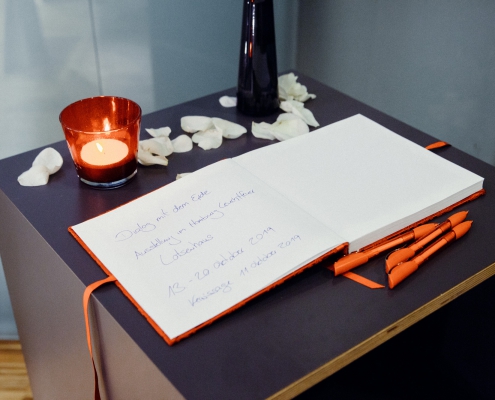 Dialog mit dem Ende
Ausstellung im Hamburg Leuchtfeuer
Lotsenhaus
13 - 20 Oktober 2019
Vernissage 11 Oktober 2019